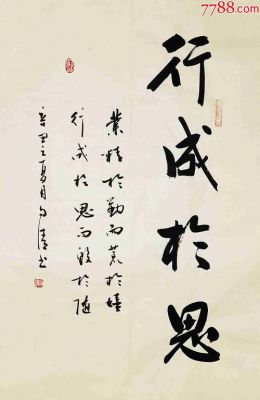 7788.com
行成於思
業精於勤而荒於嬉
行成於思而毀於隨
辛丑之夏月
书